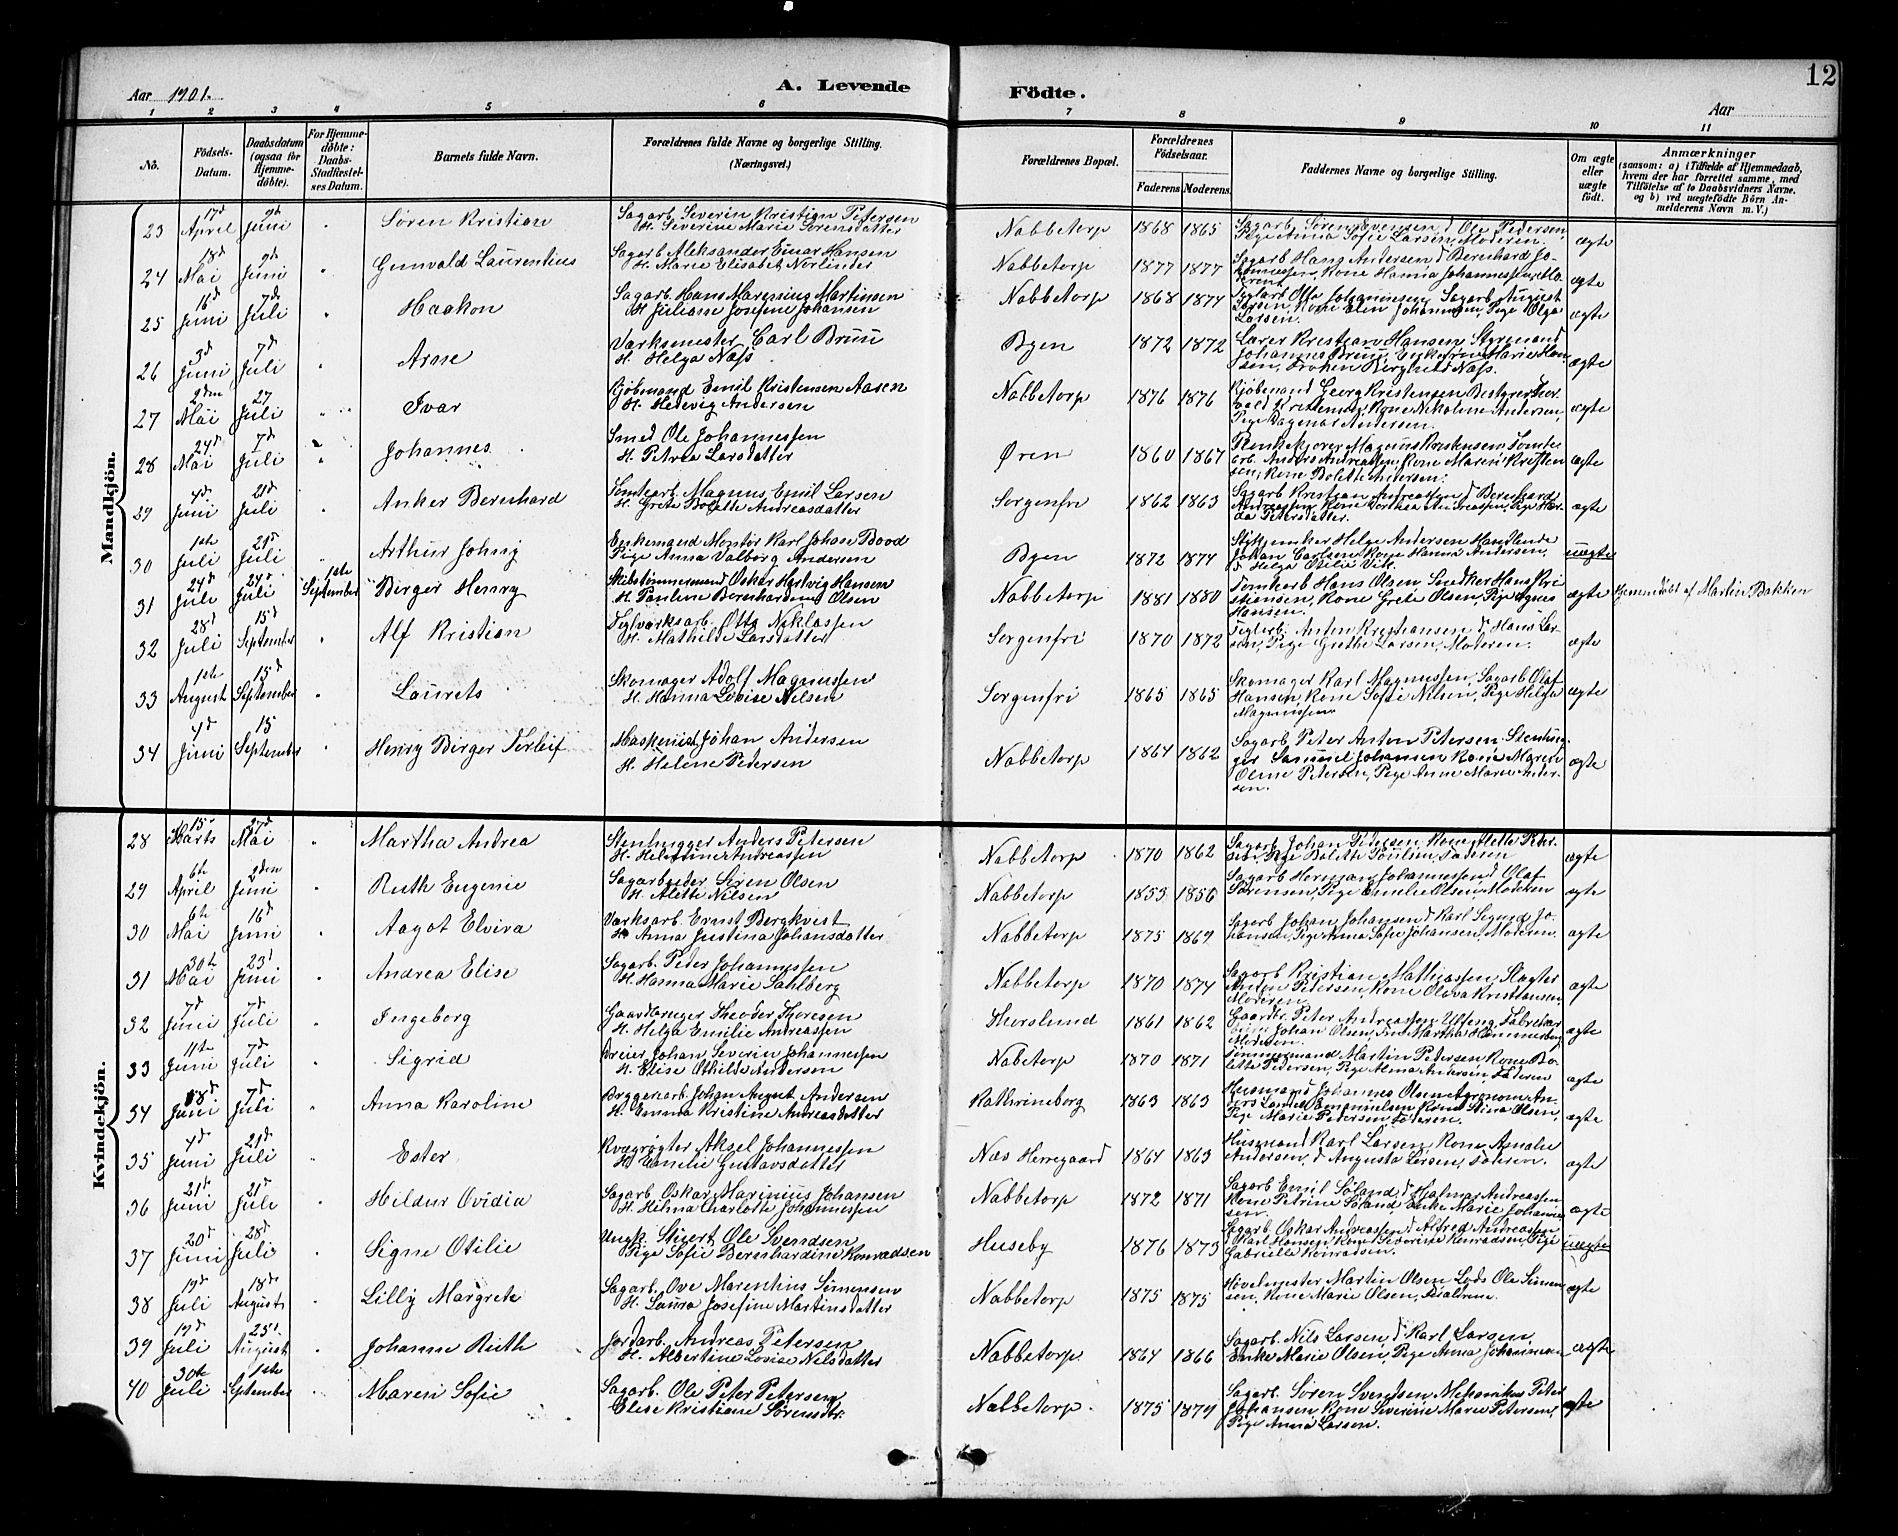 12
Aar 1901.
A. Levende
Födte.
Aar
1 2 3 4 5 6 7 8 9 10 11
No.
Födsels-Datum.
Daabsdatum (ogsaa for Hjemme-döbte).
For Hjemme-döbte: Daabs-Stadfæstel-ses Datum.
Barnets fulde Navn.
Forældrenes fulde Navne og borgerlige Stilling. (Næringsvei.)
Forældrenes Bopæl.
Forældrenes Födselsaar.
Faderens. Moderens.
Faddernes Navne og borgerlige Stilling.
Om ægte eller uægte födt.
Anmærkninger
(saasom: a) i Tilfælde af Hjemmedaab,
hvem der har forrettet samme, med
Tilföielse af to Daabsvidners Navne.
og b) ved uægtefödte Börn An-
melderens Navn m. V.)
Mandkjön.
23 17d April 9d Juni " Søren Kristian Sagarb. Severin Kristian Petersen
H. Severine Marie Sørensdatter Nabbetorp 1868 1865 Sagarb. Søren Svensen, d Ole Pedersen,
Pige Anna Sofie Larsen, Moderen. ægte
24 18d Mai 9d Juni " Gunvald Laurentius Sagarb. Aleksander Einar Hansen
H. Marie Elisabet Norlinder Nabbetorp 1877 1877 Sagarb Hans Andersen d Bernhard Jo-
hannessen, Kone Hanna Johannessen, Mo-
deren. ægte
25 16d Juni 7de Juli " Haakon Sagarb. Hans Marenius Martinsen
H. Juliane Josefine Johansen Nabbetorp 1868 1874 Teglarb Otto Johannesen, Sagarb August
Larsen, Kone Elen Johannesen, Pige Olga
Larsen. ægte
26 3d Juni 7d Juli " Arne Værksmester Carl Bruu
H. Helga Næss. Byen 1872 1872 Lærer Kristian Hansen Styrmand
Johannes Bruu, Enkefru Marie Han-
sen, Frøken Berghild Næss. ægte
27 2den Mai 27 Juli " Ivar Kjøbmand Emil Kristensen Aasen
H. Hedevig Andersen Nabbetorp 1876 1876 Kjøbmand Georg Kristensen Bestyrer Thor-
vald Kristensen, Kone Nikoline Andersen,
Pige Dagmar Andersen. ægte
28 24d Mai 7d Juli " Johannes Smed Ole Johannessen
H. Petrea Larsdatter Øren 1860 1867 Magnus Kristensen Tomte-
arb. Anders Andreassen, Kone Maren Kristen
sen, Kone Bolette Andersen. ægte
29 4d Juni 21d Juli " Anker Bernhard Tomtearb. Magnus Emil Larsen
H. Grete Bolette Andreasdatter Sorgenfri 1862 1863 Sagarb Kristian Andreassen d Bernhard
Andreassen, Kone Dorthea Andreassen, Pige Hul-
da Petersdatter. ægte
30 1ste Juli 21d Juli " Arthur Johny Enkemand Montør Karl Johan Bood
Pige Anna Valborg Andersen Byen 1872 1874 Stykjunker Helge Andersen Handlende
Johan Carlsen, Kone Hanna Andersen,
d Helga Otilie Vik. uægte
31 24d Juli 24d Juli 1ste September Birger Henry Skibstømmermand Oskar Hartvig Hansen
H. Pauline Bernhardine Olsen Nabbetorp 1881 1880 Tomtearb Hans Olsen Snedker Hans Kri
stiansen, Kone Grete Olsen, Pige Agnes
Hansen. ægte Hjemmedöbt af Martin Bakken
32 28d Juli 15d September " Alf Kristian Teglværksarb. Otto Niklassen
H. Mathilde Larsdatter Sorgenfri 1870 1872 Teglarb. Anton Kristiansen d Hans Lar-
sen, Pige Grethe Larsen, Moderen. ægte
33 1ste August 15d September " Laurets Skomager Adolf Magnussen
H. Hanna Lovise Nilsen Sorgenfri 1865 1865 Skomager Karl Magnussen, Sagarb Olaf
Hansen, Kone Sofie Nilsen, Pige Helga
Magnussen ægte
34 4d Juni 15 September " Henry Birger Torleif Maskenist Johan Andersen
H. Helene Pedersen Nabbetorp 1864 1862 Sagarb Peter Anton Petersen Stenhug-
ger Samuel Johansen Kone Maren
Oline Petersen, Pige Anne Marie Ander-
sen. ægte
Kvindekjön.
28 15d Marts 27d Mai " Martha Andrea Stenhugger Anders Petersen
H. Helene Andreassen Nabbetorp 1870 1862 Sagarb Johan Pedersen Kone Mette Peter-
sen, Pige Bolette Poulsen, Faderen ægte
29 6th April 2den Juni " Ruth Eugenie Sagarbeider Søren Olsen
H. Alette Nilsen Nabbetorp 1853 1856 Sagarb Herman Johannessen d Olaf
Sørensen, Pige Emelie Olsen, Moderen ægte
30 6te Mai 16d Juni " Aagot Elvira Værksarb. Ernst Bergkvist
H. Anna Justina Johansdatter Nabbetorp 1875 1869 Sagarb Johan Johansen d Karl Sigurd Jo-
hansen, Pige Anna Sofie Johansen, Moderen. ægte
31 30te Mai 23d Juni " Andrea Elise Sagarb. Peder Johannessen
H. Hanna Marie Sahlberg Nabbetorp 1870 1874 Sagarb Kristian Mathiassen Slagter
Anton Petersen, Kone Olava Kristiansen,
Moderen ægte
32 7d Juni 7d Juli " Ingeborg Gaardbruger Theodor Thoresen
H. Helga Emilie Andreassen Thorslund 1861 1862 Gaardbr. Peter Andreassen Ulfeng, Fabrikar
Johan Olsen, Martha Hammerberg
Moderen ægte
33 11te Juni 7d Juli " Sigrid Dreier Johan Severin Johannessen
H. Elise Othilde Andersen Nabetorp 1870 1871 Tømmermand Martin Petersen Kone Bo-
lette Pedersen, Pige Alma Andersen, Faderen ægte
34 18d Juni 7d Juli " Anna Karoline Bryggeriarb. Johan August Andersen
H. Emma Kristine Andreasdatter Kathrineborg 1863 1863 Husmand Johannes Olsen Agronom An-
ders Emanuelsen Kone Stina Olsen,
Pige Marie Pedersen, Faderen. ægte
35 4d Juni 21d Juli " Ester Kvægrøgter Aksel Johannessen
H. Emelie Gustavsdatter Næs Herregaard 1864 1863 Husmand Karl Larsen Kone Amalie
Andersen, d Augusta Larsen, Faderen. ægte
36 21d Juni 21d Juli " Hildur Ovidia Sagarb. Oskar Marinius Johansen
H. Hilma Charlotte Johannessen Nabbetorp 1872 1871 Sagarb Emil Søland, d Hjalmar Andreassen
Kone Petrine Søland, Enke Marie Johannes
sen. ægte
37 20d Juni 28d Juli " Signe Otilie Ungk. Stigert Ole Svendsen
Pige Sofie Bernhardine Konradsen Huseby 1876 1873 Sagarb. Oskar Andreassen d Alfred Andreassen
Karl Hansen, Kone Severine Konradsen, Pige
Gabrielle Konradsen. uægte
38 19d Juli 18d August " Lilly Margrete Sagarb. Ove Marentius Simensen
H. Laura Josefine Martinsdatter Nabbetorp 1875 1875 Høvelmester Martin Olsen, Lods Ole Simen
sen, Kone Marie Olsen, Forældrene. ægte
39 19d Juli 25d August " Johanne Ruth Jordarb. Andreas Petersen
H. Albertine Lovise Nilsdatter Nabbetorp. 1864 1866 Sagarb. Nils Larsen, d Karl Larsen,
Enke Marie Olsen, Pige Anna Johannesen ægte
40 30te Juli 1ste September " Maren Sofie Sagarb. Ole Peter Petersen
Elise Kristiane Sørensdtr. Nabbetorp. 1875 1879 Sagarb. Søren Svendsen Mekanikus Peter
Johansen Kone Severine Marie Petersen,
Pige Anna Larsen. ægte